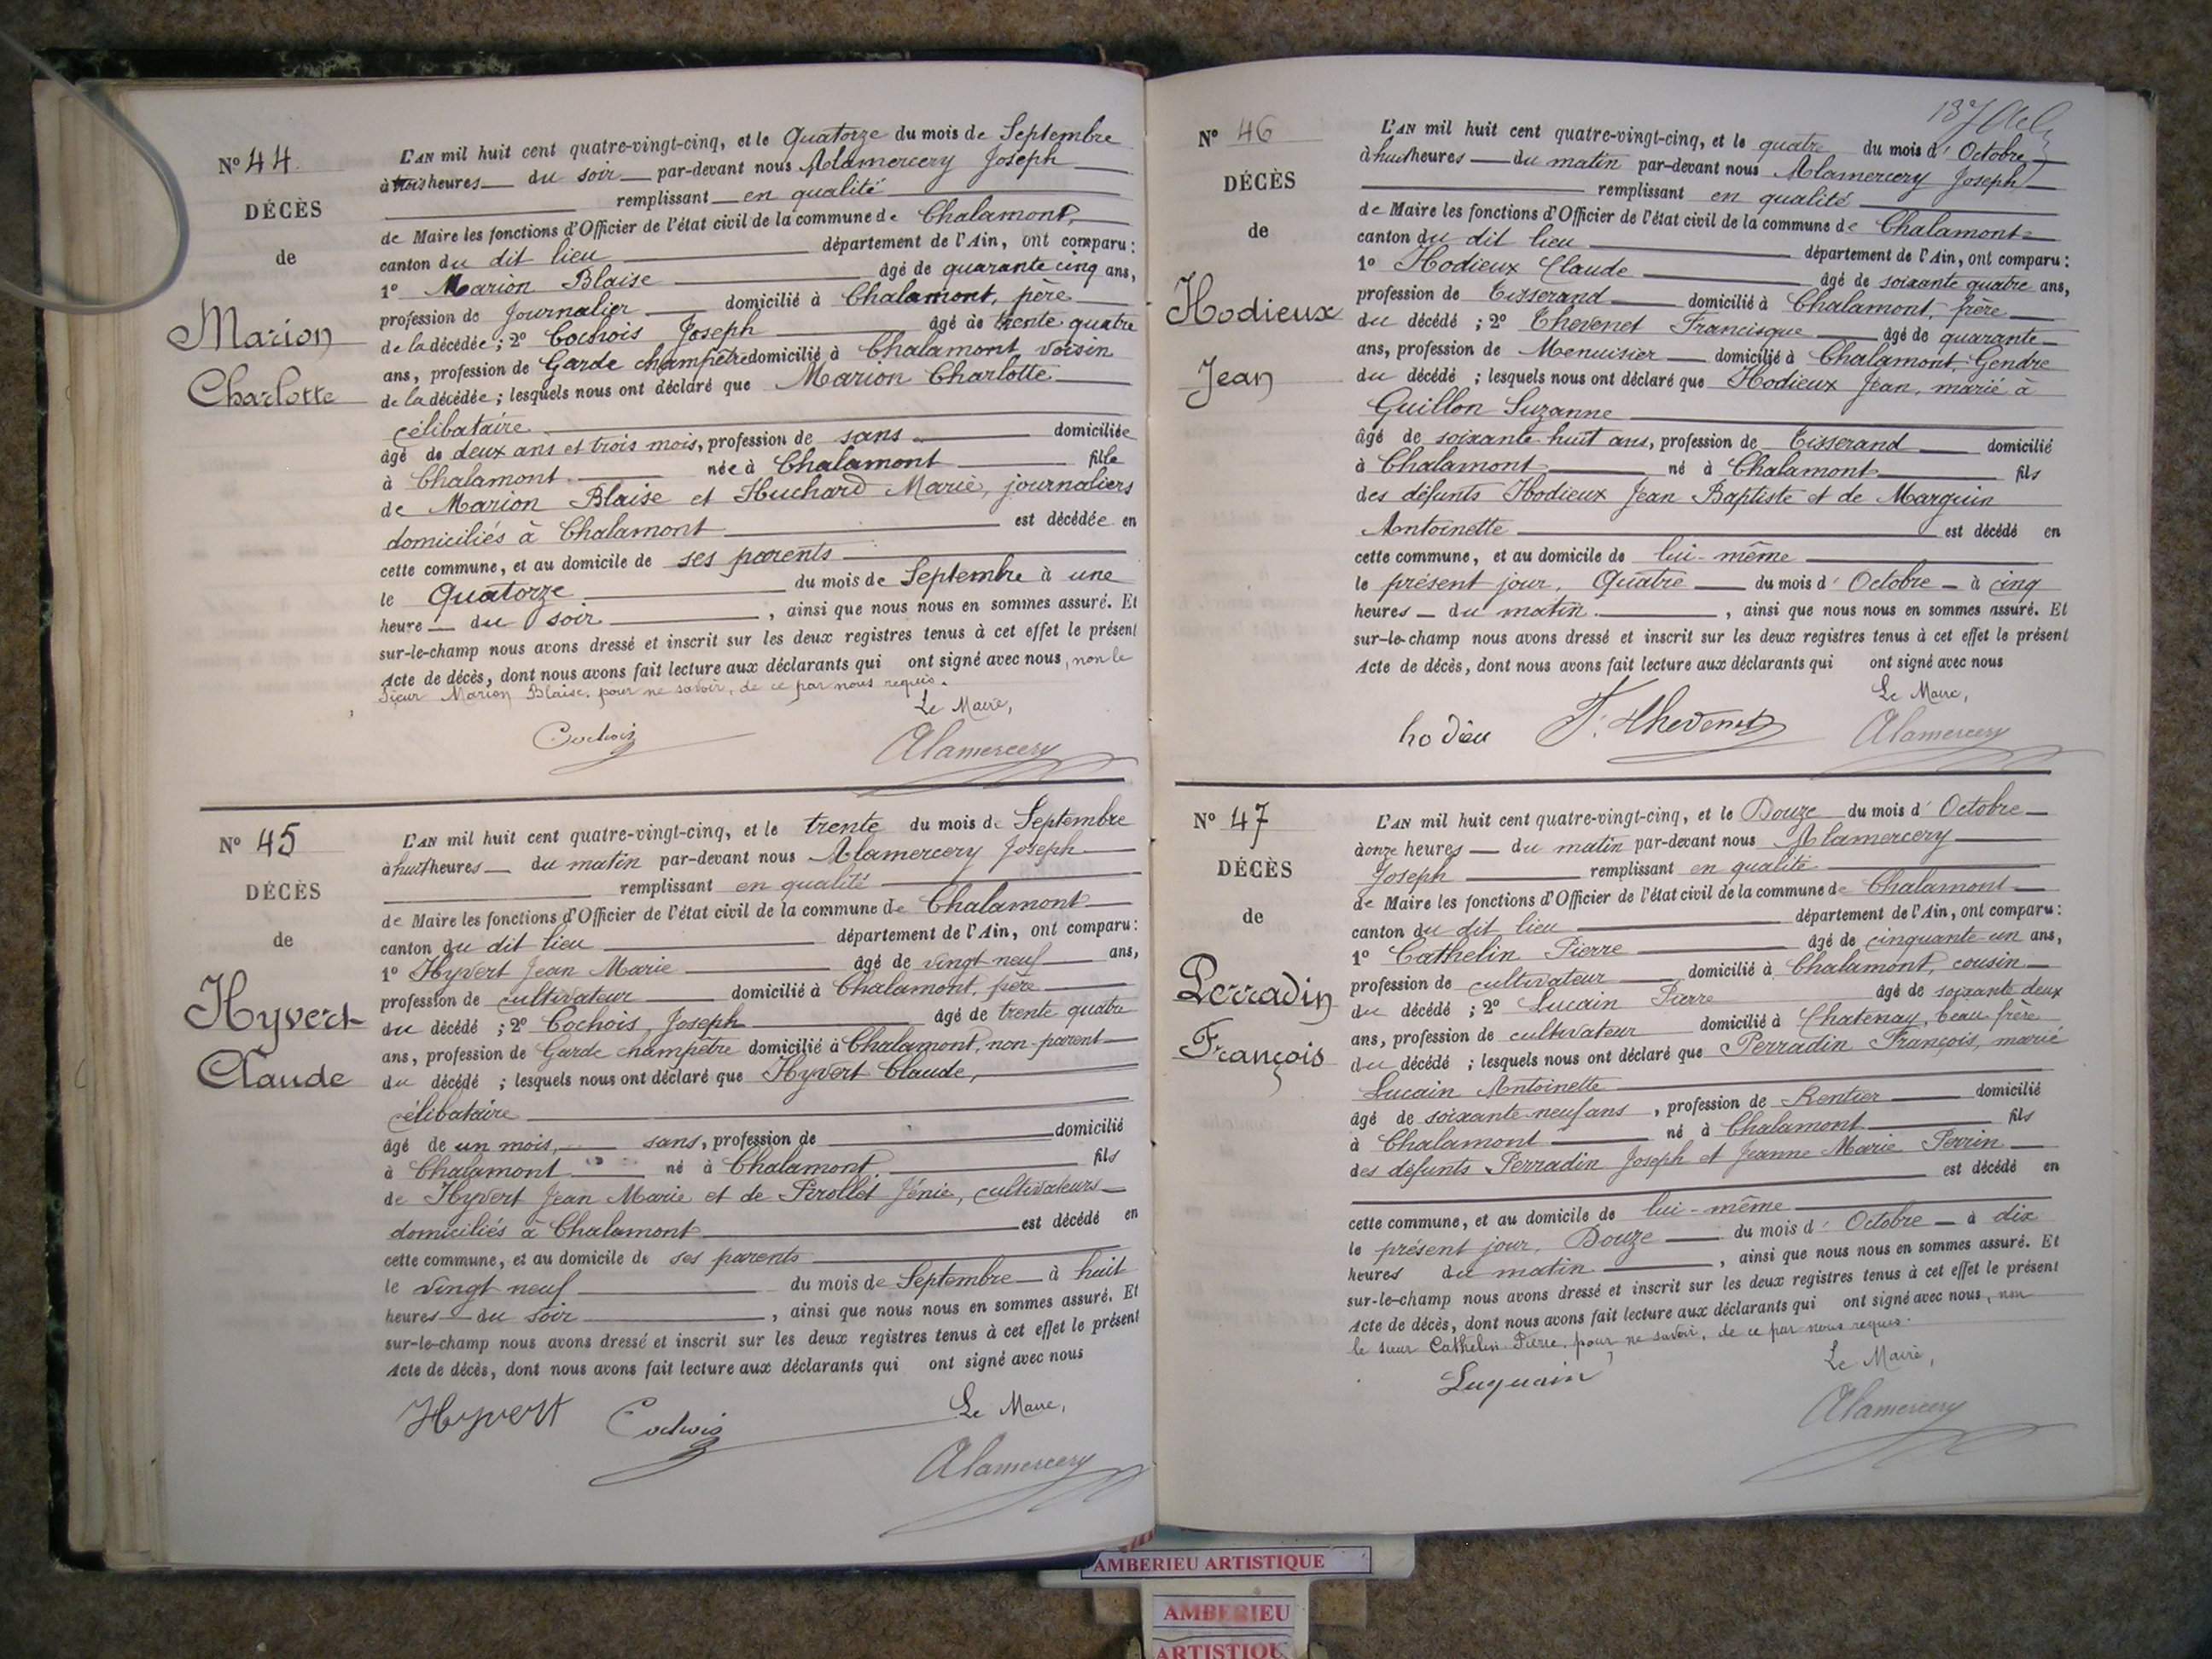 Nº 44
DÉCÈS
de
Marion
Charlotte
L'AN mil huit cent quatre-vingt-cinq, et le Quatorze du mois de Septembre
à trois heures du soir par-devant nous Alamercery Joseph
remplissant en qualité
de Maire les fonctions d'Officier de l'état civil de la commune de Chalamont,
canton du dit lieu département de l'Ain, ont comparu:
1º Marion Blaise âgé de quarante cinq ans,
profession de Journalier domicilié à Chalamont, père
de la décédée; 2º Cochois Joseph âgé de trente quatre
ans, profession de Garde champêtre domicilié à Chalamont voisin
de la décédée; lesquels nous ont déclaré que Marion Charlotte
célibataire
âgé de deux ans et trois mois, profession de sans domiciliée
à Chalamont née à Chalamont fille
de Marion Blaise et Huchard Marie, journaliers
domiciliés à Chalamont est décédée en
cette commune, et au domicile de ses parents
le Quatorze du mois de Septembre à une
heure du soir, ainsi que nous nous en sommes assuré. Et
sur-le-champ nous avons dressé et inscrit sur les deux registres tenus à cet effet le présent
Acte de décès, dont nous avons fait lecture aux déclarants qui ont signé avec nous, non le
Sieur Marion Blaise, pour ne savoir, de ce par nous requis.
Le Maire,
Cochois
Alamercery
Nº 45
DÉCÈS
de
Hyvert
Claude
L'AN mil huit cent quatre-vingt-cinq, et le trente du mois de Septembre
à huit heures du matin par-devant nous Alamercery Joseph
remplissant en qualité
de Maire les fonctions d'Officier de l'état civil de la commune de Chalamont
canton du dit lieu département de l'Ain, ont comparu:
1º Hyvert Jean Marie âgé de vingt neuf ans,
profession de cultivateur domicilié à Chalamont, père
du décédé; 2º Cochois Joseph âgé de trente quatre
ans, profession de Garde champêtre domicilié à Chalamont, non-parent
du décédé; lesquels nous ont déclaré que Hyvert Claude,
célibataire
âgé de un mois, sans, profession de domicilié
à Chalamont né à Chalamont fils
de Hyvert Jean Marie et de Pirollet Jénie, cultivateurs
domiciliés à Chalamont est décédé en
cette commune, et au domicile de ses parents
le vingt neuf du mois de Septembre à huit
heures du soir, ainsi que nous nous en sommes assuré. Et
sur-le-champ nous avons dressé et inscrit sur les deux registres tenus à cet effet le présent
Acte de décès, dont nous avons fait lecture aux déclarants qui ont signé avec nous
Le Maire,
Hyvert Cochois
Alamercery
Nº 46
DÉCÈS
de
Hodieux
Jean
L'AN mil huit cent quatre-vingt-cinq, et le quatre du mois d'Octobre
à huit heures du matin par-devant nous Alamercery Joseph
remplissant en qualité
de Maire les fonctions d'Officier de l'état civil de la commune de Chalamont
canton du dit lieu département de l'Ain, ont comparu:
1º Hodieux Claude âgé de soixante quatre ans,
profession de Tisserand domicilié à Chalamont, frère
du décédé; 2º Thevenet Francisque âgé de quarante
ans, profession de Menuisier domicilié à Chalamont, Gendre
du décédé; lesquels nous ont déclaré que Hodieux Jean, marié à
Guillon Suzanne
âgé de soixante huit ans, profession de Tisserand domicilié
à Chalamont né à Chalamont fils
des défunts Hodieux Jean Baptiste et de Marguin
Antoinette est décédé en
cette commune, et au domicile de lui-même
le présent jour, Quatre du mois d'Octobre à cinq
heures du matin, ainsi que nous nous en sommes assuré. Et
sur-le-champ nous avons dressé et inscrit sur les deux registres tenus à cet effet le présent
Acte de décès, dont nous avons fait lecture aux déclarants qui ont signé avec nous
Le Maire,
hodieu F. Thevenet Alamercery
Nº 47
DÉCÈS
de
Perradin
François
L'AN mil huit cent quatre-vingt-cinq, et le Douze du mois d'Octobre
à onze heures du matin par-devant nous Alamercery
Joseph remplissant en qualité
de Maire les fonctions d'Officier de l'état civil de la commune de Chalamont
canton du dit lieu département de l'Ain, ont comparu:
1º Cathelin Pierre âgé de cinquante-un ans,
profession de cultivateur domicilié à Chalamont, cousin
du décédé; 2º Lucain Pierre âgé de soixante deux
ans, profession de cultivateur domicilié à Chatenay, beau frère
du décédé; lesquels nous ont déclaré que Perradin François, marié
Lucain Antoinette
âgé de soixante-neuf ans, profession de Rentier domicilié
à Chalamont né à Chalamont fils
des défunts Perradin Joseph et Jeanne Marie Perrin
est décédé en
cette commune, et au domicile de lui-même
le présent jour, Douze du mois d'Octobre à dix
heures du matin, ainsi que nous nous en sommes assuré. Et
sur-le-champ nous avons dressé et inscrit sur les deux registres tenus à cet effet le présent
Acte de décès, dont nous avons fait lecture aux déclarants qui ont signé avec nous, non
le sieur Cathelin Pierre, pour ne savoir, de ce par nous requis.
Le Maire,
Luquain
Alamercery
AMBERIEU ARTISTIQUE
AMBERIEU
ARTISTIQUE